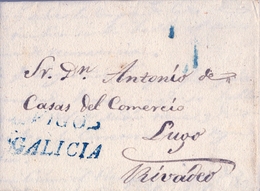 Sr. Dn. Antonio de
Casas del Comercio
Lugo
GALICIA
Rivadeo